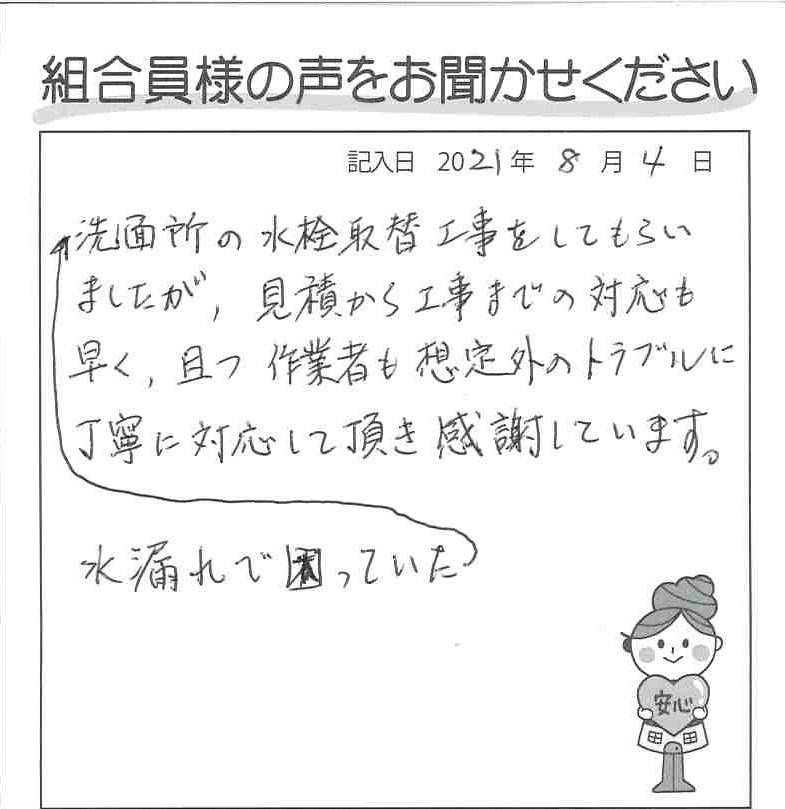 組合員様の声をお聞かせください
記入日 2021年 8月 4日
洗面所の水栓取替工事をしてもらい
ましたが, 見積から工事までの対応も
早く, 且つ作業者も想定外のトラブルに
丁寧に対応して頂き感謝しています。
水漏れで困っていた
安心